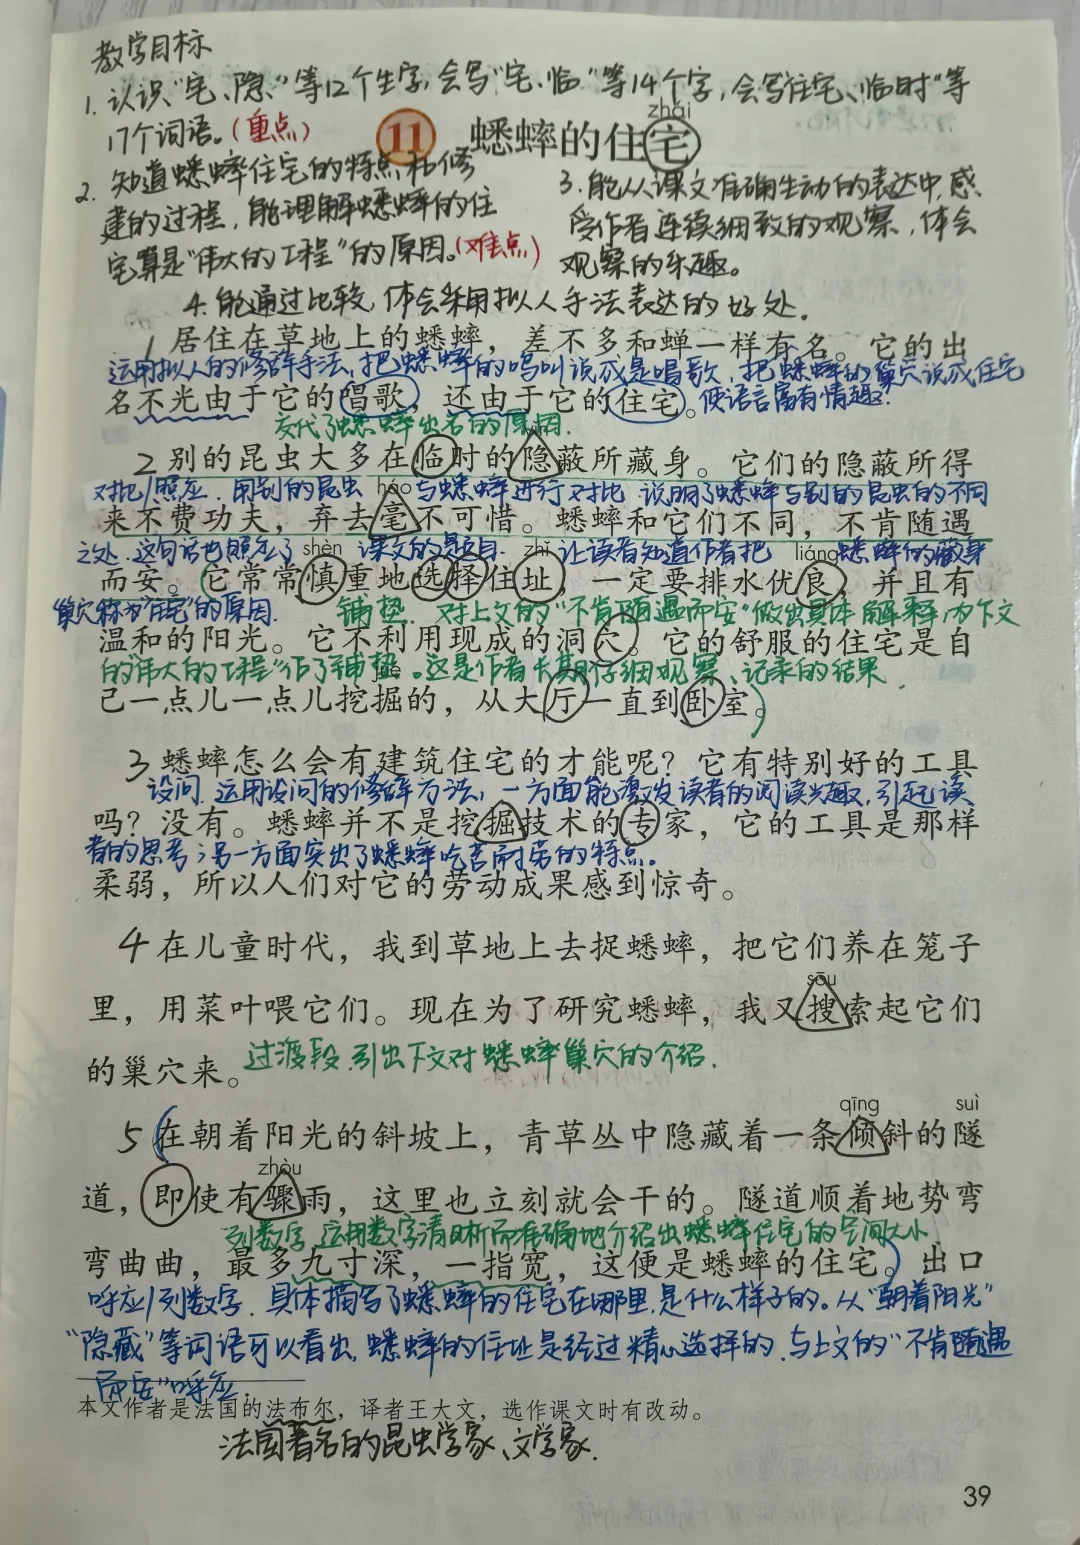 教学目标
1. 认识"宅、隐"等12个生字,会写"宅、临"等14个字,会写"住宅、临时"等
17个词语。(重点)
zhái
11 蟋蟀的住宅
2. 知道蟋蟀住宅的特点和修
建的过程,能理解蟋蟀的住
宅算是"伟大的工程"的原因。(难点)
3. 能从课文准确生动的表达中,感
受作者连续细致的观察,体会
观察的乐趣。
4. 能通过比较,体会采用拟人手法表达的好处.
1 居住在草地上的蟋蟀,差不多和蝉一样有名。它的出
运用拟人的修辞手法,把蟋蟀的鸣叫说成是唱歌,把蟋蟀的巢穴说成住宅
名不光由于它的唱歌,还由于它的住宅。使语言富有情趣!
交代了蟋蟀出名的原因.
2 别的昆虫大多在临时的隐蔽所藏身。它们的隐蔽所得
对比/照应. 用别的昆虫 háo 与蟋蟀进行对比 说明了蟋蟀与别的昆虫的不同
来不费功夫,弃去毫不可惜。蟋蟀和它们不同,不肯随遇
之处.这句话也照应了 shèn 课文的题目. zhǐ 让读者知道作者把 liáng 蟋蟀的藏身
而安。它常常慎重地选择住址,一定要排水优良,并且有
巢穴称为"住宅"的原因. 铺垫. 对上文的"不肯随遇而安"做出具体解释,为下文
温和的阳光。它不利用现成的洞穴。它的舒服的住宅是自
的"伟大的工程"作了铺垫。这是作者长期仔细观察、记录的结果.
己一点儿一点儿挖掘的,从大厅一直到卧室。
3 蟋蟀怎么会有建筑住宅的才能呢?它有特别好的工具
设问.运用设问的修辞方法,一方面能激发读者的阅读兴趣,引起读
吗?没有。蟋蟀并不是挖掘技术的专家,它的工具是那样
者的思考;另一方面突出了蟋蟀吃苦耐劳的特点。
柔弱,所以人们对它的劳动成果感到惊奇。
4 在儿童时代,我到草地上去捉蟋蟀,把它们养在笼子
sōu
里,用菜叶喂它们。现在为了研究蟋蟀,我又搜索起它们
的巢穴来。过渡段.引出下文对蟋蟀巢穴的介绍.
qīng suì
5 在朝着阳光的斜坡上,青草丛中隐藏着一条倾斜的隧
zhòu
道,即使有骤雨,这里也立刻就会干的。隧道顺着地势弯
列数字 运用数字清晰而准确地介绍出蟋蟀住宅的空间大小
弯曲曲,最多九寸深,一指宽,这便是蟋蟀的住宅。出口
呼应/列数字. 具体描写了蟋蟀的住宅在哪里,是什么样子的。从"朝着阳光"
"隐藏"等词语可以看出,蟋蟀的住址是经过精心选择的,与上文的"不肯随遇
而安"呼应.
本文作者是法国的法布尔,译者王大文,选作课文时有改动。
法国著名的昆虫学家、文学家.
39